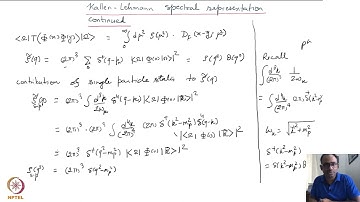 Kallen-Lehmann spectral representation
continued
<Ω|T(Φ(x)Φ(y))|Ω> = ∫₀^∞ dμ² ρ(μ²) · D_F(x-y; μ²)
ρ̃(q) = (2π)³ Σ δ⁴(q-k) |<Ω|Φ(0)|k>|² = ρ(q²) θ(q⁰)
contribution of single particle states to ρ̃(q)
ρ̃(q) = (2π)³ ∫ d³k/(2π)³ 1/2ω_k δ⁴(q-k) |<Ω|Φ(0)|k>|²
= (2π)³ · (2π)³ ∫ d⁴k/(2π)⁴ (2π) δ⁺(k²-m_p²) δ⁴(q-k)
|<Ω|Φ(0)|k>|²
= (2π)³ δ⁺(q²-m_p²) |<Ω|Φ(0)|k>|²
(2π)³ δ(q²-m_p²)
Recall
∫ d³k/(2π)³ 1/2ω_k
= ∫ d⁴k/(2π)⁴ 2π δ(k²-
ω_k = √(k²+m_p²)
δ⁺(k²-m_p²)
= δ(k²-m_p²) θ
NPTEL